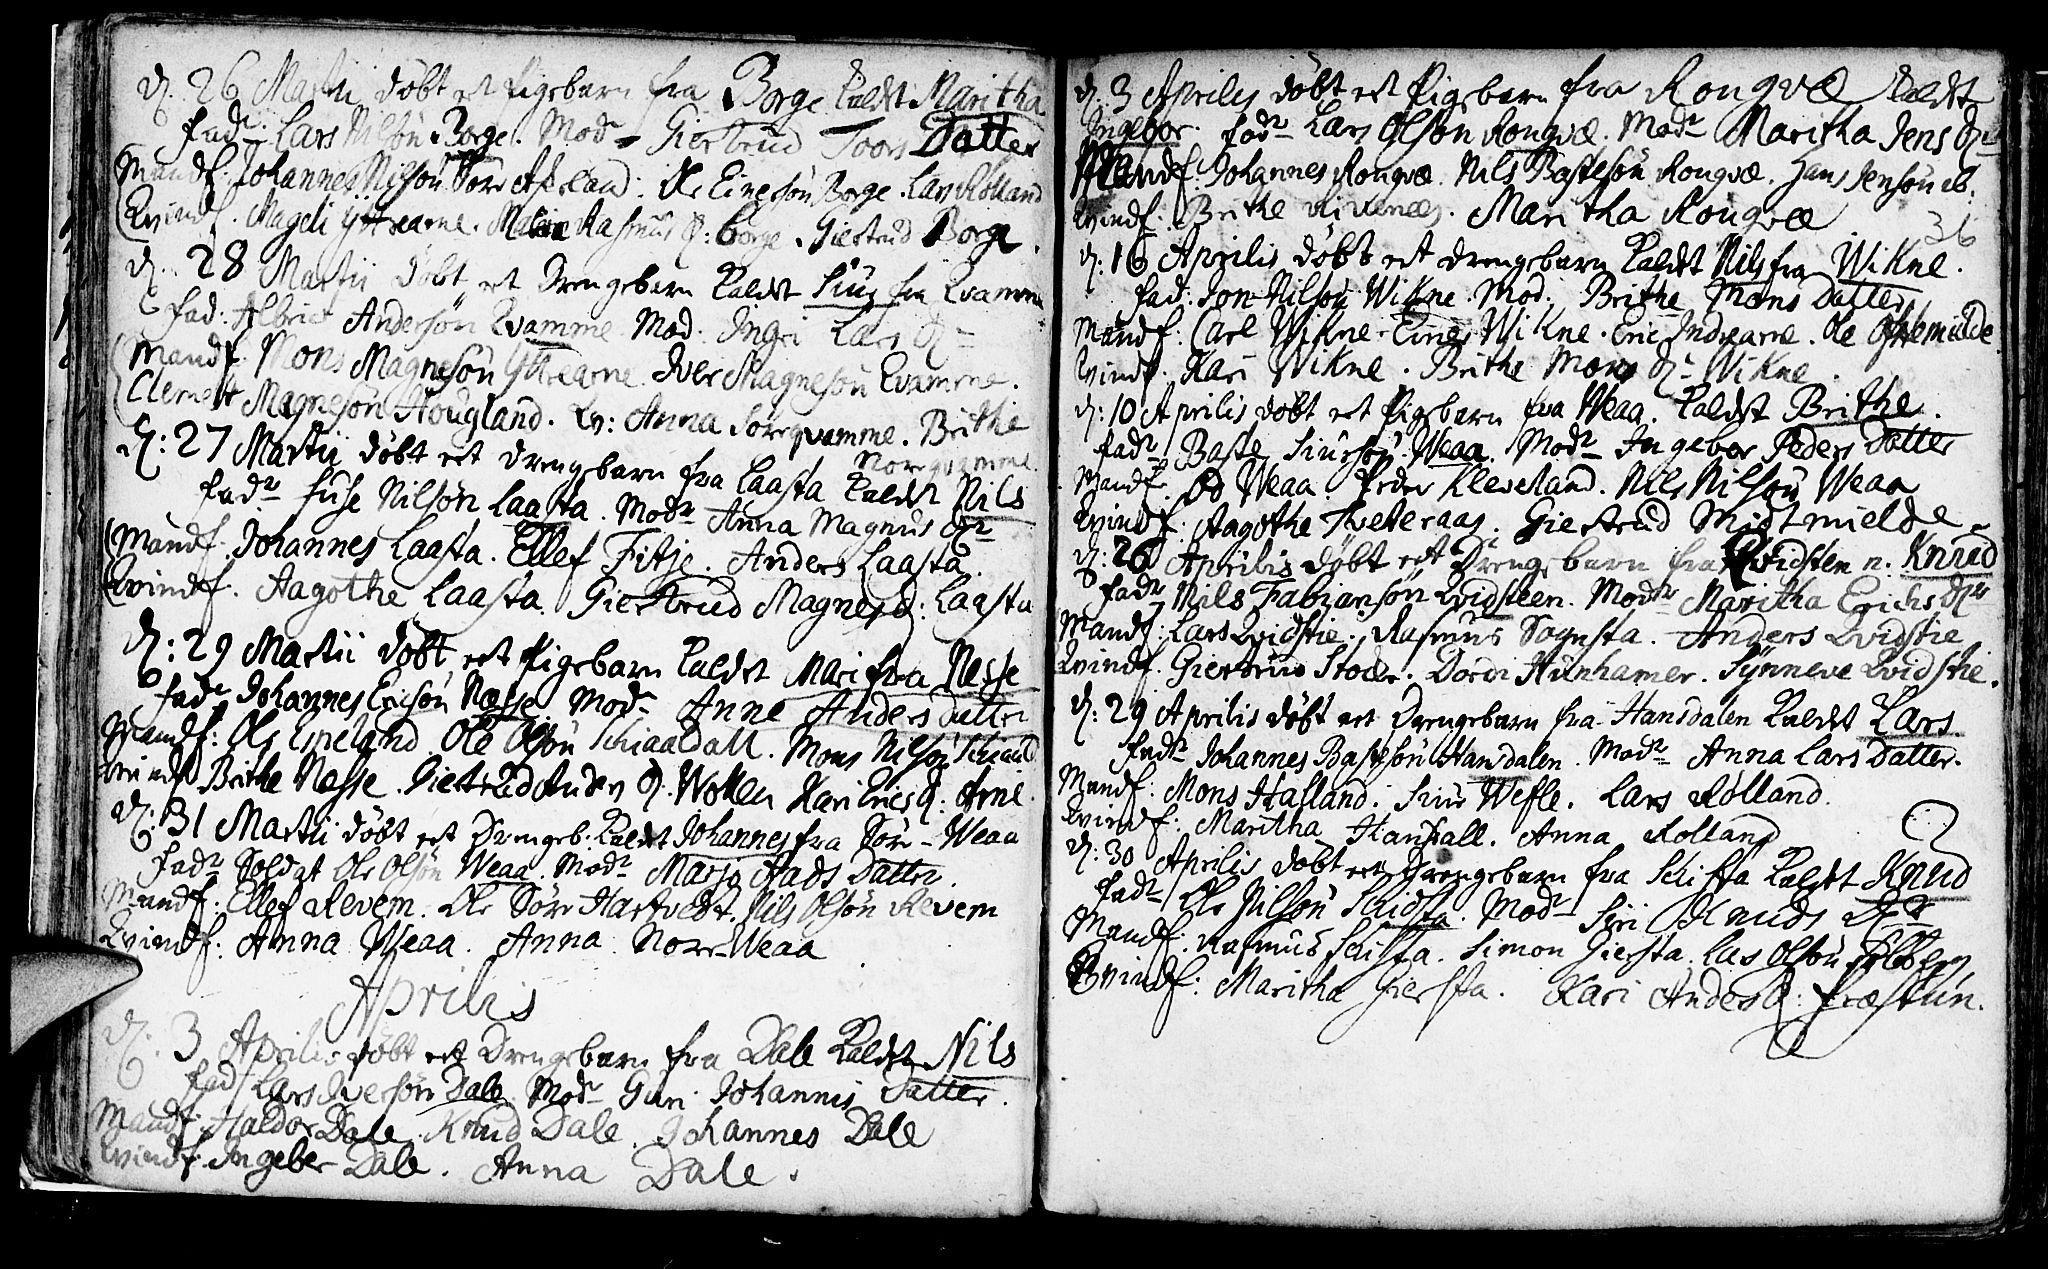 d. 26 Martii døbt et Pigebarn fra Borge kaldt Maritha
Fadr. Lars Nilsøn Borge. Modr Giertrud Toors Datter
Mandf. Johannes Nilsøn Søre Aferland. Ole Einesøn Borge. Lars Rolland
Qvindf. Mageli Yttrearne. Rasmus D: Borge. Giertrud Borge.
d. 28 Martii døbt et Drengebarn kaldt Siur fra Qvamme
Fad. Albrict Andersøn Qvamme Mod. Ingri Lars Dr
Mandf. Mons Magnesøn Yttrearne. Iver Magnesøn Qvamme.
Clemett Magnesøn Hougland. Qv: Anna Søreqvamme. Brithe
Noreqvamme.
d: 27 Martii døbt et Drengebarn fra Laasta kaldt Nils
Fadr Fuse Nilsøn Laasta. Modr Anna Magnus Dr
Mandf. Johannes Laasta. Ellef Fitje. Anders Laasta.
Qvindf. Aagothe Laasta. Giertrud Magnes D: Laasta
d: 29 Martii døbt et Pigebarn kaldt Mari fra Nesse
Fadr Johannes Ericsøn Næsse Modr Anne Anders Datter
Mandf: Ole Espeland Ole Olsøn Schiaaldall. Mons Nilsøn
Qvindf Brithe Nesse. Giertrud Anders D. Kari Erics D: Arne.
d: 31 Martii døbt et Drengeb. kaldt Johannes fra Søre-Weaa
Fadr Soldat Ole Olsøn Weaa. Modr Marjo Aads Datter.
Mandf: Ellef Revem. Ole Søre Hartvedt. Nils Olsøn Revem
Qvindf: Anna Weaa. Anna Nore-Weaa
Aprilis
d: 3 Aprilis døbt et Drengebarn fra Dale kaldt Nils
Fad Lars Iversøn Dale Modr Guri Johannis Datter.
Mandf. Haldor Dale. Knud Dale. Johannes Dale
Qvindf. Ingeber Dale. Anna Dale.
d: 3 Aprilis døbt et Pigebarn fra Rongvæ kaldt
Ingebor. Fadr Lars Olsøn Rongvæ. Modr Maritha Jens Dr
Mandf. Johannes Rongvæ. Nils Bastesøn Rongvæ. Hans Jensøn ib:
Qvindf. Brithe Rivenes. Maritha Rongvæ
36
d: 16 Aprilis døbt et Drengebarn kaldt Nils fra Wikne.
Fad: Jon Nilsøn Wikne. Mod. Brithe Mons Datter
Mandf: Carl Wikne. Einer Wikne. Eric Indrearne. Ole
Qvindf. Kari Wikne. Brithe Mons Dr Wikne.
d: 10 Aprilis døbt et Pigebarn fra Weaa. kaldt Brithe.
Fadr Baste Siursøn Weaa. Modr Ingebor Peders Datter
Mandf. Od Weaa. Peder Kleveland. Nils Nilsøn Weaa
Qvindf. Aagothe Tveteraas. Giertrud Midtmielde
d: 26 Aprilis døbt et Drengebarn fra Qvidsten n. Knud
Fadr Nils Fabiansøn Qvidsteen. Modr Maritha Erichs Dr
Mandf: Lars Qvidstie. Rasmus Sognsta. Anders Qvidstie
Qvindf. Giertrud Stoer. Dordi Hunhamer. Synneve Qvidstie.
d: 29 Aprilis døbt et Drengebarn fra Hansdalen kaldt Lars.
Fadr Johannes Bastesøn Hansdalen. Modr Anna Lars Datter.
Mandf: Mons Hafland. Siur Wefle. Lars Rolland.
Qvindf: Maritha Hansdall. Anna Rolland
d: 30 Aprilis døbt et Drengebarn fra Schifta kaldt Knud
Fadr Ole Nilsøn Modr Siri Knuds Dr
Mandf. Rasmus Schifta. Simon Giersta. Lars Olsøn
Qvindf: Maritha Giersta. Kari Anders D: Præstun.